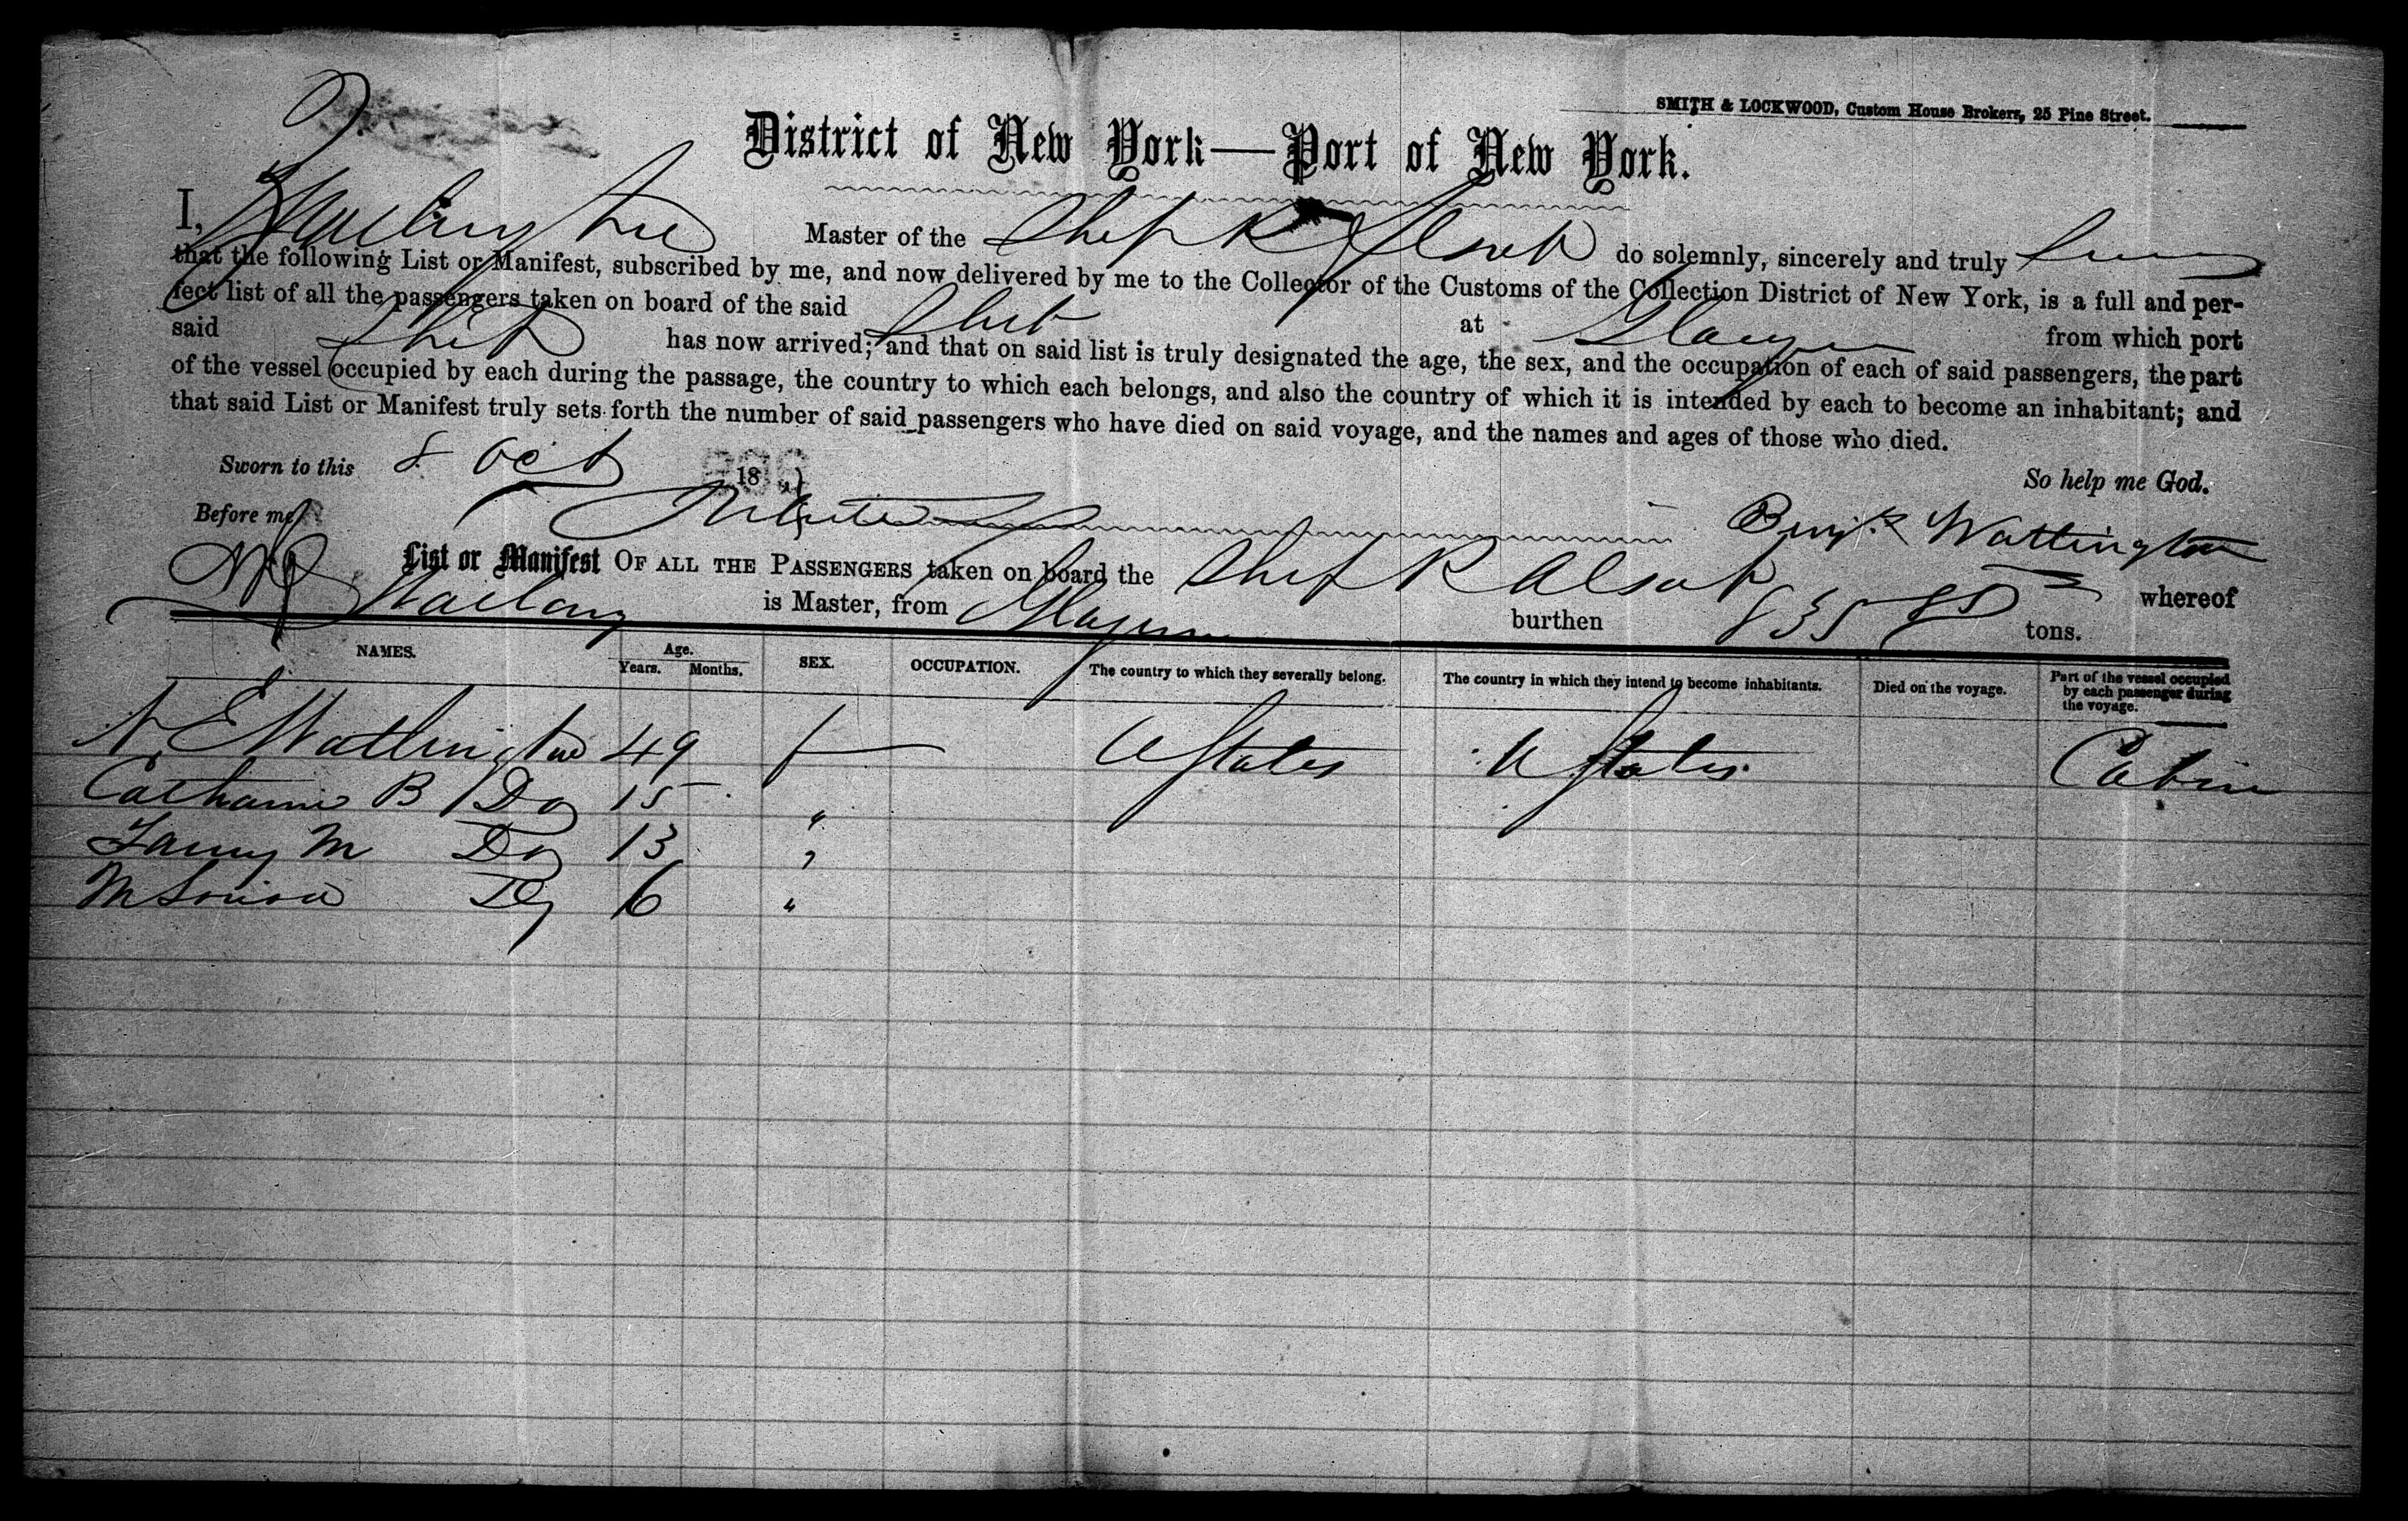 SMITH & LOCKWOOD, Custom House Brokers, 25 Pine Street.
District of New York—Port of New York.
I, Watlington Master of the Ship R Alsop do solemnly, sincerely and truly swear
that the following List or Manifest, subscribed by me, and now delivered by me to the Collector of the Customs of the Collection District of New York, is a full and per-
fect list of all the passengers taken on board of the said Ship at Glasgow from which port
said Ship has now arrived; and that on said list is truly designated the age, the sex, and the occupation of each of said passengers, the part
of the vessel occupied by each during the passage, the country to which each belongs, and also the country of which it is intended by each to become an inhabitant; and
that said List or Manifest truly sets forth the number of said passengers who have died on said voyage, and the names and ages of those who died.
Sworn to this 8 Oct 18 So help me God.
Before me Benj. Watlington
List or Manifest OF ALL THE PASSENGERS taken on board the Ship R Alsop whereof
is Master, from Glasgow burthen 835 tons.
NAMES. Age. Years. Months. SEX. OCCUPATION. The country to which they severally belong. The country in which they intend to become inhabitants. Died on the voyage. Part of the vessel occupied by each passenger during the voyage.
E Watlington 49 f U States U States Cabin
Catharine B Do 15 "
Fanny M Do 13 "
M Louisa Do 6 "